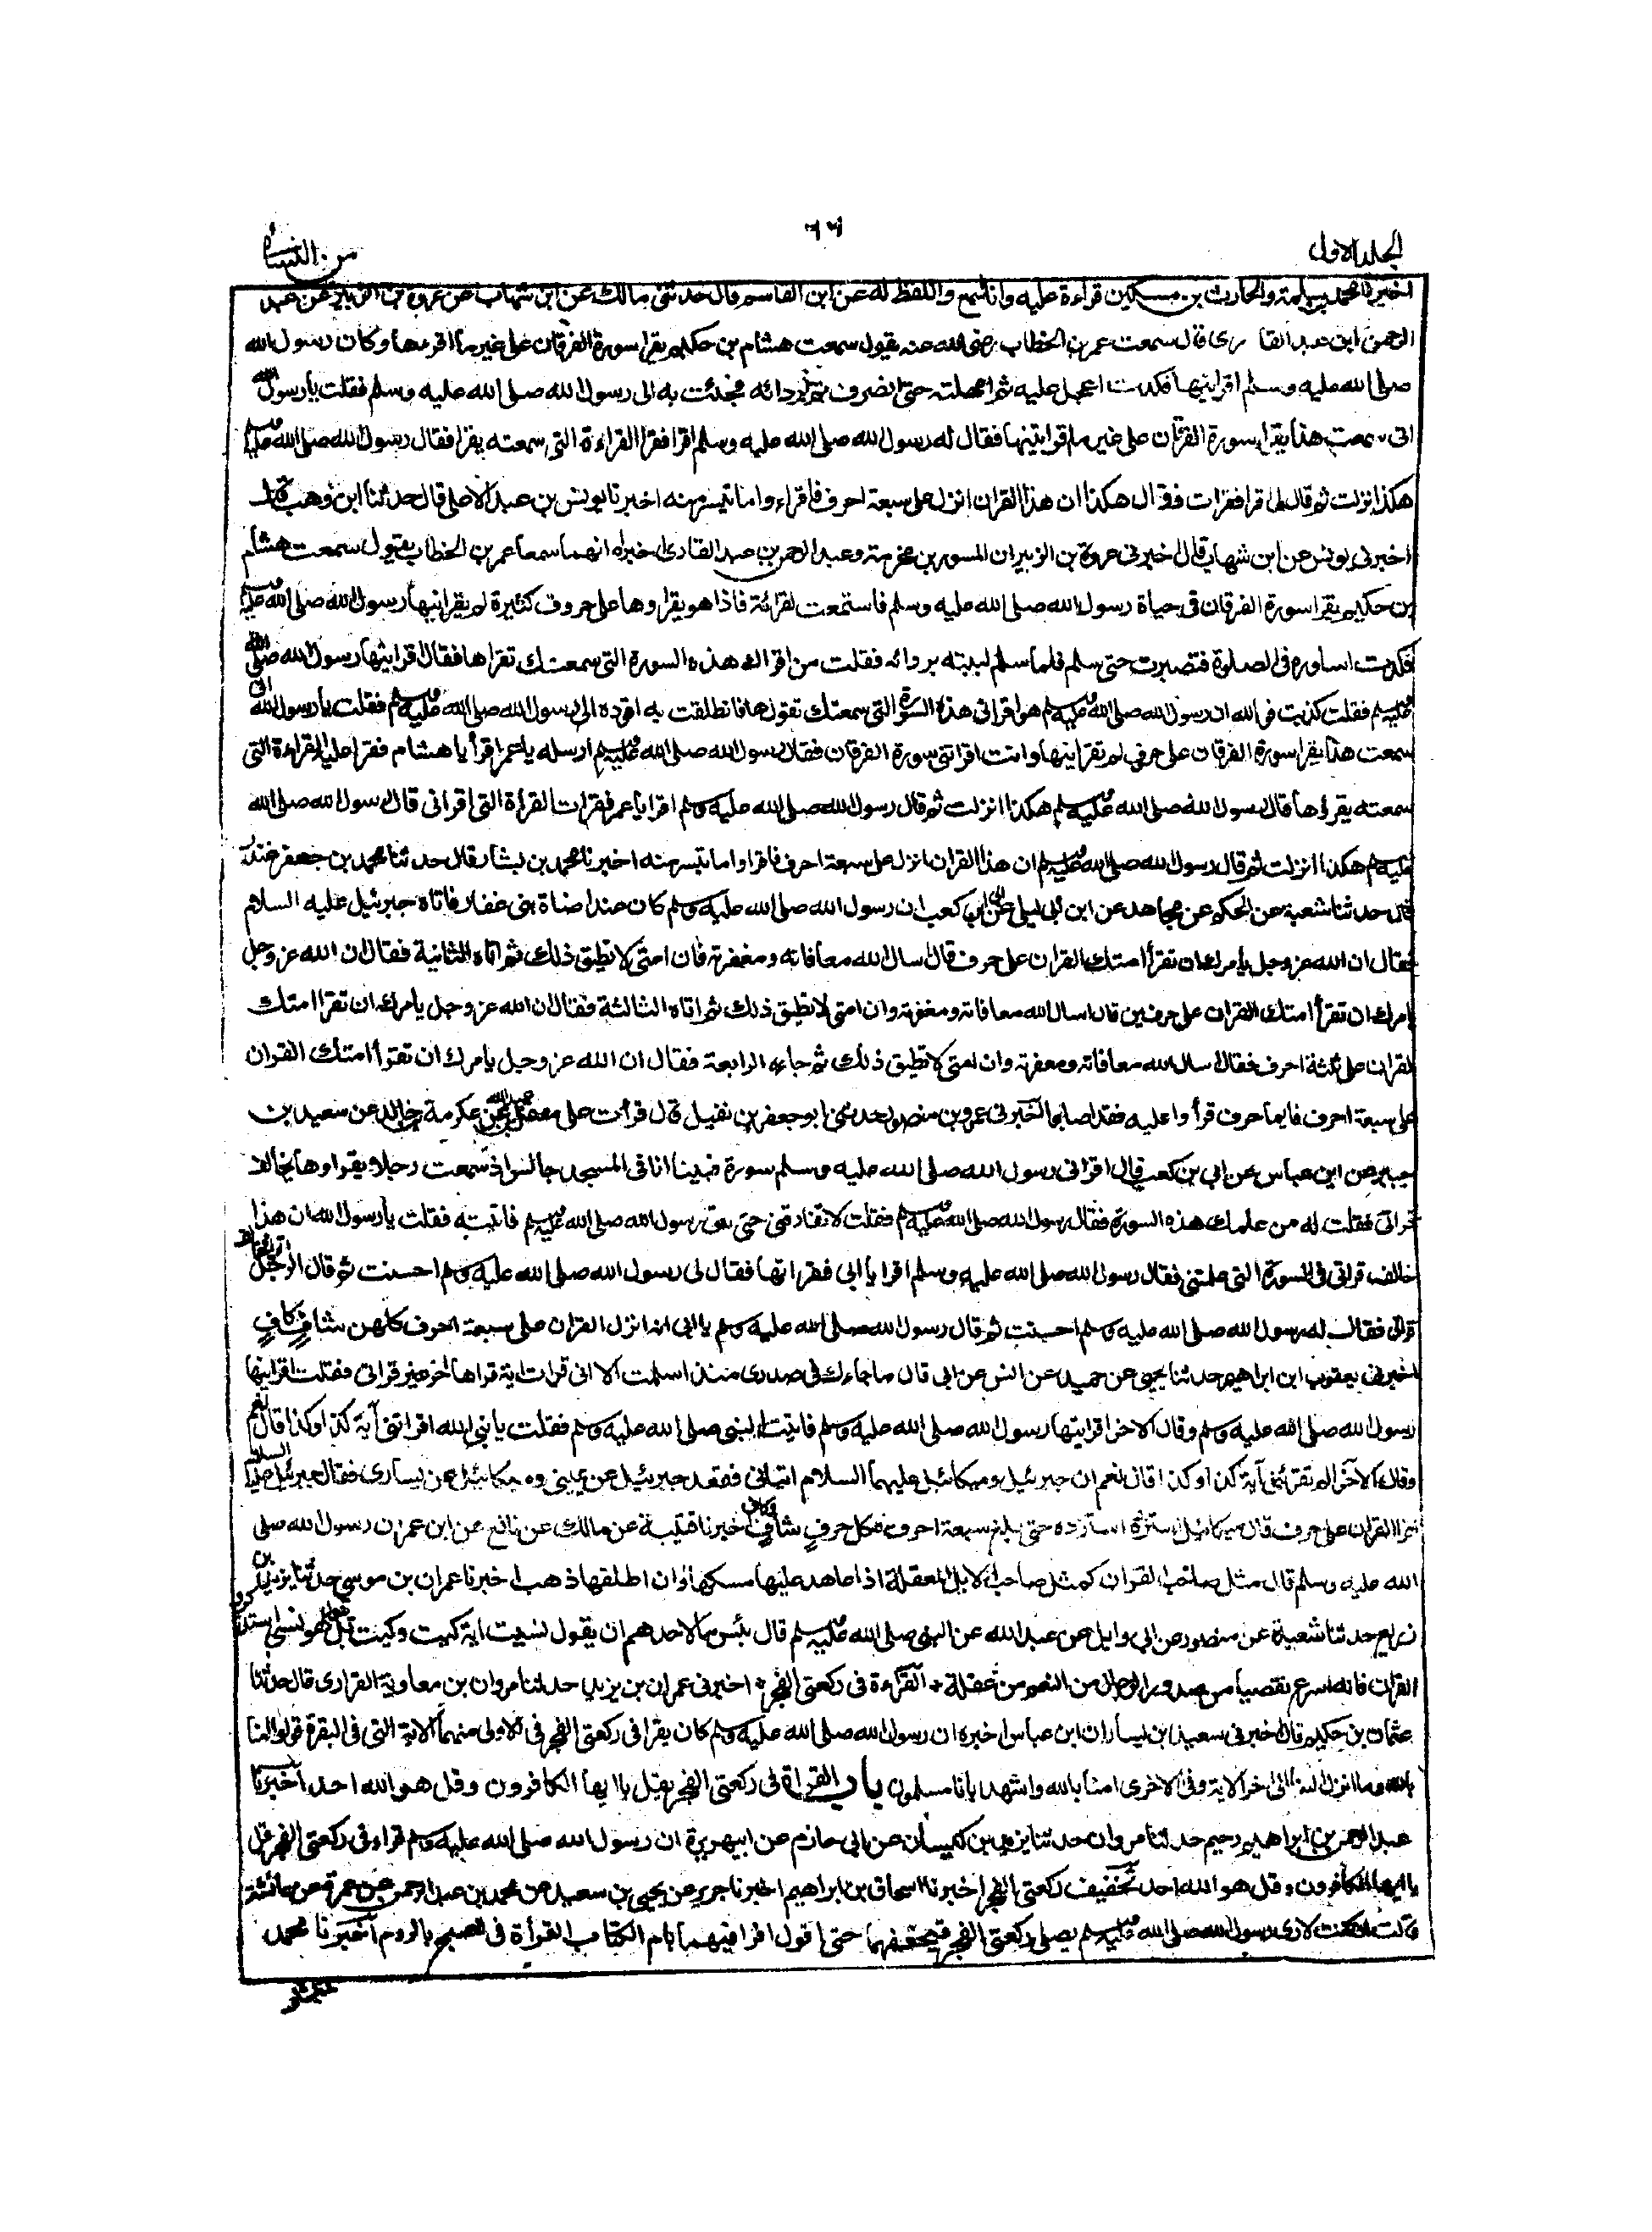 الجلد الاول
٦٦
من النسائي
اخبرنا محمد بن سلمة والحارث بن مسكين قراءة عليه وانا اسمع واللفظ له عن ابن القاسم قال حدثني مالك عن ابن شهاب عن عروة بن الزبير عن عبد
الرحمن ابن عبد القاري قال سمعت عمر بن الخطاب رضى الله عنه يقول سمعت هشام بن حكيم يقرا سورة الفرقان على غير ما اقرءها وكان رسول الله
صلى الله عليه وسلم اقرانيها فكدت اعجل عليه ثم امهلته حتى انصرف ثم لببته بردائه فجئت به الى رسول الله صلى الله عليه وسلم فقلت يا رسول الله
انى سمعت هذا يقرا سورة الفرقان على غير ما اقراتنيها فقال له رسول الله صلى الله عليه وسلم اقرا فقرا القراءة التى سمعته يقرا فقال رسول الله صلى الله عليه وسلم
هكذا انزلت ثم قال لى اقرا فقرات فقال هكذا ان هذا القران انزل على سبعة احرف فاقراءوا ما تيسر منه اخبرنا يونس بن عبد الاعلى قال حدثنا ابن وهب قال
اخبرنى يونس عن ابن شهاب قال اخبرنى عروة بن الزبير ان المسور بن مخرمة وعبد الرحمن بن عبد القارى اخبراه انهما سمعا عمر بن الخطاب يقول سمعت هشام
بن حكيم يقرا سورة الفرقان فى حياة رسول الله صلى الله عليه وسلم فاستمعت لقرائة فاذا هو يقراوها على حروف كثيرة لم يقرانيها رسول الله صلى الله عليه وسلم
فكدت اساوره فى الصلوة فتصبرت حتى سلم فلما سلم لببته بردائه فقلت من اقراك هذه السورة التى سمعتك تقراها فقال اقرانيها رسول الله صلى الله
عليه وسلم فقلت كذبت فو الله ان رسول الله صلى الله عليه وسلم هو اقرانى هذه السورة التى سمعتك تقولها فانطلقت به اقوده الى رسول الله صلى الله عليه وسلم فقلت يا رسول الله انى
سمعت هذا يقرا سورة الفرقان على حرف لم تقرانيها وانت اقراتنى سورة الفرقان فقال رسول الله صلى الله عليه وسلم ارسله يا عمر اقرأ يا هشام فقرا عليه القراءة التى
سمعته يقرؤها قال رسول الله صلى الله عليه وسلم هكذا انزلت ثم قال رسول الله صلى الله عليه وسلم اقرا يا عمر فقرات القرأة التى اقرانى قال رسول الله صلى الله
عليه وسلم هكذا انزلت ثم قال رسول الله صلى الله عليه وسلم ان هذا القران انزل على سبعة احرف فاقراوا ما تيسر منه اخبرنا محمد بن بشار قال حدثنا محمد بن جعفر غندر
قال حدثنا شعبة عن الحكم عن مجاهد عن ابن ابى ليلى عن ابى بن كعب ان رسول الله صلى الله عليه وسلم كان عند اضاة بنى غفار فاتاه جبرئيل عليه السلام
فقال ان الله عز وجل يأمرك ان تقرأ امتك القران على حرف قال اسال الله معافاته ومغفرته فان امتى لا تطيق ذلك ثم اتاه الثانية فقال ان الله عز وجل
يامرك ان تقرأ امتك القران على حرفين قال اسال الله معافاته ومغفرته وان امتى لا تطيق ذلك ثم اتاه الثالثة فقال ان الله عز وجل يامرك ان تقرا امتك
القران على ثلثة احرف فقال اسال الله معافاته ومغفرته وان امتى لا تطيق ذلك ثم جاءه الرابعة فقال ان الله عز وجل يامرك ان تقرأ امتك القران
على سبعة احرف فايما حرف قرأوا عليه فقد اصابوا اخبرنى عمرو بن منصور حدثنى ابو جعفر بن نفيل قال قرأت على معقل بن عبيد الله عن عكرمة بن خالد عن سعيد بن
جبير عن ابن عباس عن ابى بن كعب قال اقرانى رسول الله صلى الله عليه وسلم سورة فبينا انا فى المسجد جالس اذ سمعت رجلا يقراوها يخالف
قراتى فقلت له من علمك هذه السورة فقال رسول الله صلى الله عليه وسلم فقلت لا تفارقنى حتى نلق رسول الله صلى الله عليه وسلم فاتيته فقلت يا رسول الله ان هذا
خالف قراتى فى السورة التى علمتنى فقال رسول الله صلى الله عليه وسلم اقرا يا ابى فقراتها فقال لى رسول الله صلى الله عليه وسلم احسنت ثم قال للرجل اقرا فخالف
قراتى فقال له رسول الله صلى الله عليه وسلم احسنت ثم قال رسول الله صلى الله عليه وسلم يا ابى انه انزل القران على سبعة احرف كلهن شافٍ كافٍ
اخبرنى يعقوب ابن ابراهيم حدثنا يحيى عن حميد عن انس عن ابى قال ما حاك فى صدرى منذ اسلمت الا انى قرات اية قراها آخر غير قراتى فقلت اقرانيها
رسول الله صلى الله عليه وسلم وقال الاخر اقرانيها رسول الله صلى الله عليه وسلم فاتيت النبى صلى الله عليه وسلم فقلت يا نبى الله اقراتنى آية كذا وكذا قال نعم
وقال الآخر الم تقرئنى آية كذا وكذا قال نعم ان جبرئيل وميكائيل عليهما السلام اتيانى فقعد جبرئيل عن يمينى وميكائيل عن يسارى فقال جبرئيل عليه السلام
اقرا القران على حرف قال ميكائيل استزده استزده حتى بلغ سبعة احرف فكل حرف شافٍ كافٍ اخبرنا قتيبة عن مالك عن نافع عن ابن عمر ان رسول الله صلى
الله عليه وسلم قال مثل صاحب القران كمثل صاحب الابل المعقلة اذا عاهد عليها امسكها وان اطلقها ذهبت اخبرنا عمران بن موسى حدثنا يزيد بن
زريع حدثنا شعبة عن منصور عن ابى وايل عن عبد الله عن النبى صلى الله عليه وسلم قال بئس ما لاحدهم ان يقول نسيت اية كيت وكيت بل هو نسى استذكروا
القران فانه اسرع تفصيا من صدور الرجال من النعم من عقله * القراءة فى ركعتى الفجر * اخبرنى عمران بن يزيد حدثنا مروان بن معاوية الفزارى قال حدثنا
عثمان بن حكيم قال اخبرنى سعيد ابن يسار ان ابن عباس اخبره ان رسول الله صلى الله عليه وسلم كان يقرا فى ركعتى الفجر فى الاولى منهما الاية التى فى البقرة قولوا امنا
بالله وما انزل الينا الى اخر الاية وفى الاخرى امنا بالله واشهد بانا مسلمون باب القراة فى ركعتى الفجر بقل يا ايها الكافرون وقل هو الله احد اخبرنا
عبد الرحمن بن ابراهيم دحيم حدثنا مروان حدثنا يزيد بن كيسان عن ابى حازم عن ابيهريرة ان رسول الله صلى الله عليه وسلم قراء فى ركعتى الفجر قل
يا ايها الكافرون وقل هو الله احد تخفيف ركعتى الفجر اخبرنا اسحاق بن ابراهيم اخبرنا جرير عن يحيى بن سعيد عن محمد بن عبد الرحمن عن عمرة عن عائشة
قالت ان كنت لارى رسول الله صلى الله عليه وسلم يصلى ركعتى الفجر فيخففهما حتى اقول اقرا فيهما بام الكتاب القرأة فى الصبح بالروم اخبرنا محمد